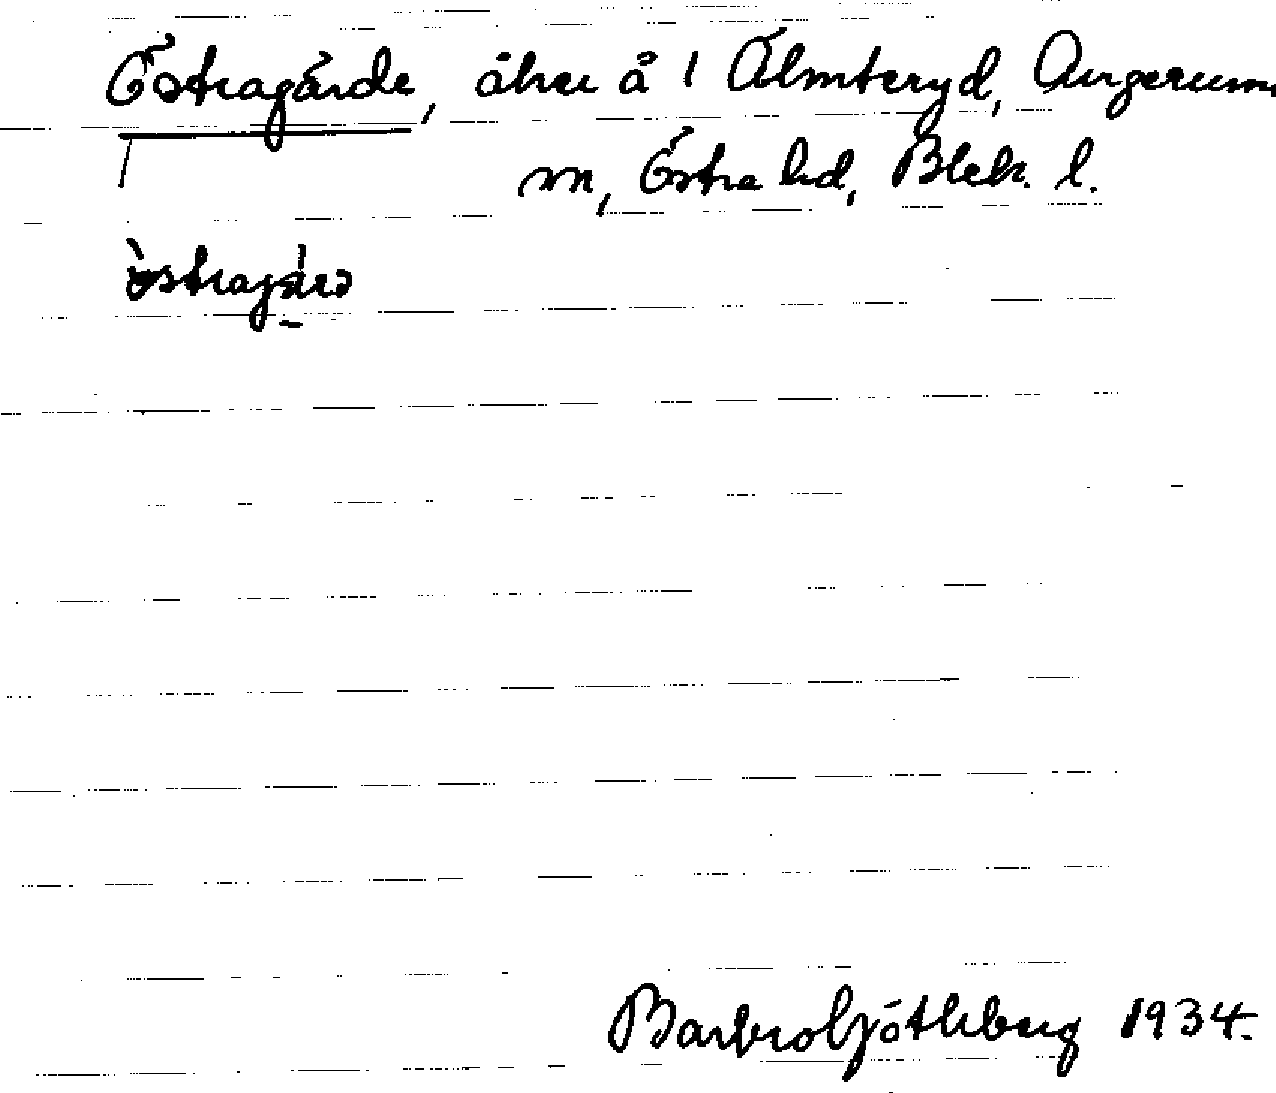 Östragärde, åker å 1 Älmteryd, Augerum
sn, Östra hd, Blek. l.
östragärə
Barbro Götlberg 1934.